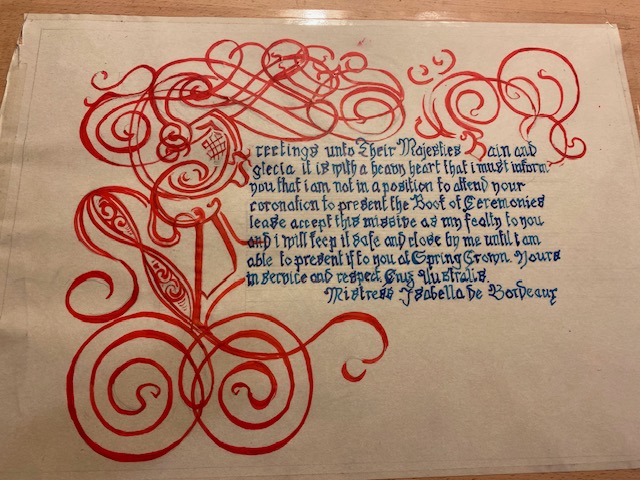 Greetings unto Their Majesties Kain and
it is with a heavy heart that i must inform
you that i am not in a position to attend your
coronation to present the Book of Ceremonies
Please accept this missive as my fealty to you
and i will keep it safe and close by me until I am
able to present it to you at Spring Crown. Yours
in service and respect. Crux Australis.
Mistress Isabella de Bordeaux